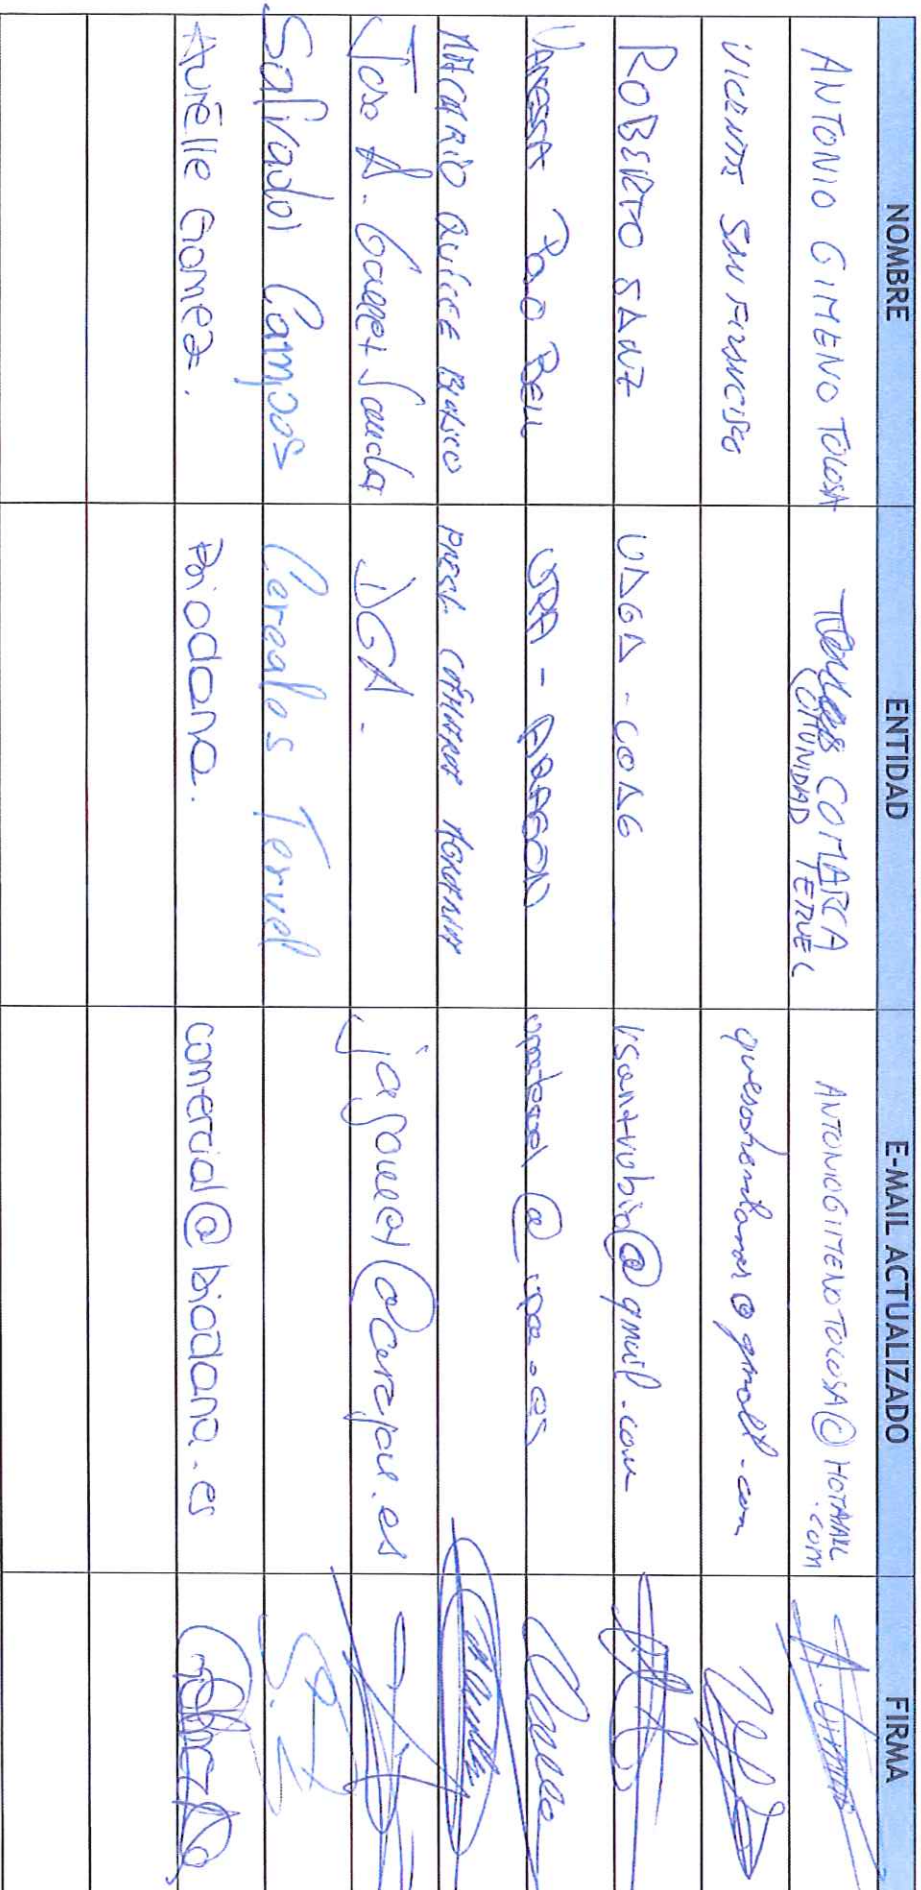 NOMBRE ENTIDAD E-MAIL ACTUALIZADO FIRMA
ANTONIO GIMENO TOLOSA COMARCA COMUNIDAD TERUEL ANTONIOGIMENOTOLOSA@HOTMAIL.com
VICENTE SAN FRANCISCO @gmail.com
ROBERTO SANZ UAGA-COAG rsanzrubio@gmail.com
VANESSA POLO BELL UPA-ARAGON upateruel@upa.es
MACARIO QUILEZ BLASCO
Jose A. Sancho DGA. @aragon.es
Salvador Campos Cereales Teruel
Aurelie Gomez. Biodana. comercial@biodana.es